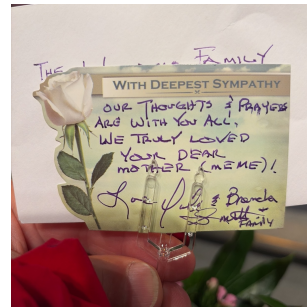 THE FAMILY
WITH DEEPEST SYMPATHY
OUR THOUGHTS & PRAYERS
ARE WITH YOU ALL.
WE TRULY LOVED
YOUR DEAR
MOTHER (MEME)!
Love & Brenda
& FAMILY